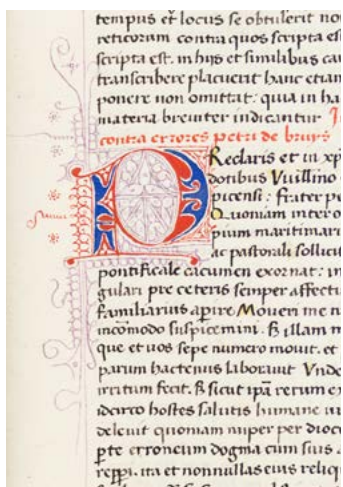 tempus et locus se obtulerit no
reticorum contra quos scripta es
scripta est. in hys et similibus ca
transcribere placuerit hanc etian
ponere non omittat: quia in ha
materia breviter indicantur
contra errores petri de bruys
PReclaris et in xp
dotibus Vuillino
picensi: frater pe
Quoniam inter o
pium maritimari
ac pastorali sollicit
pontificale cacumen exornat: in
gulari pre ceteris semper affectu
familiarius apire Moveri me n
incomodo suspicemini. illam n
que et vos sepe numero movit. et
parum hactenus laboravit Vnde
irritum fecit. sicut ipa rerum ex
idcirco hostes salutis humane
delevit quoniam nuper per dioc
pte erroneum dogma cum suis
repp. ita et nonnullas eius reliq